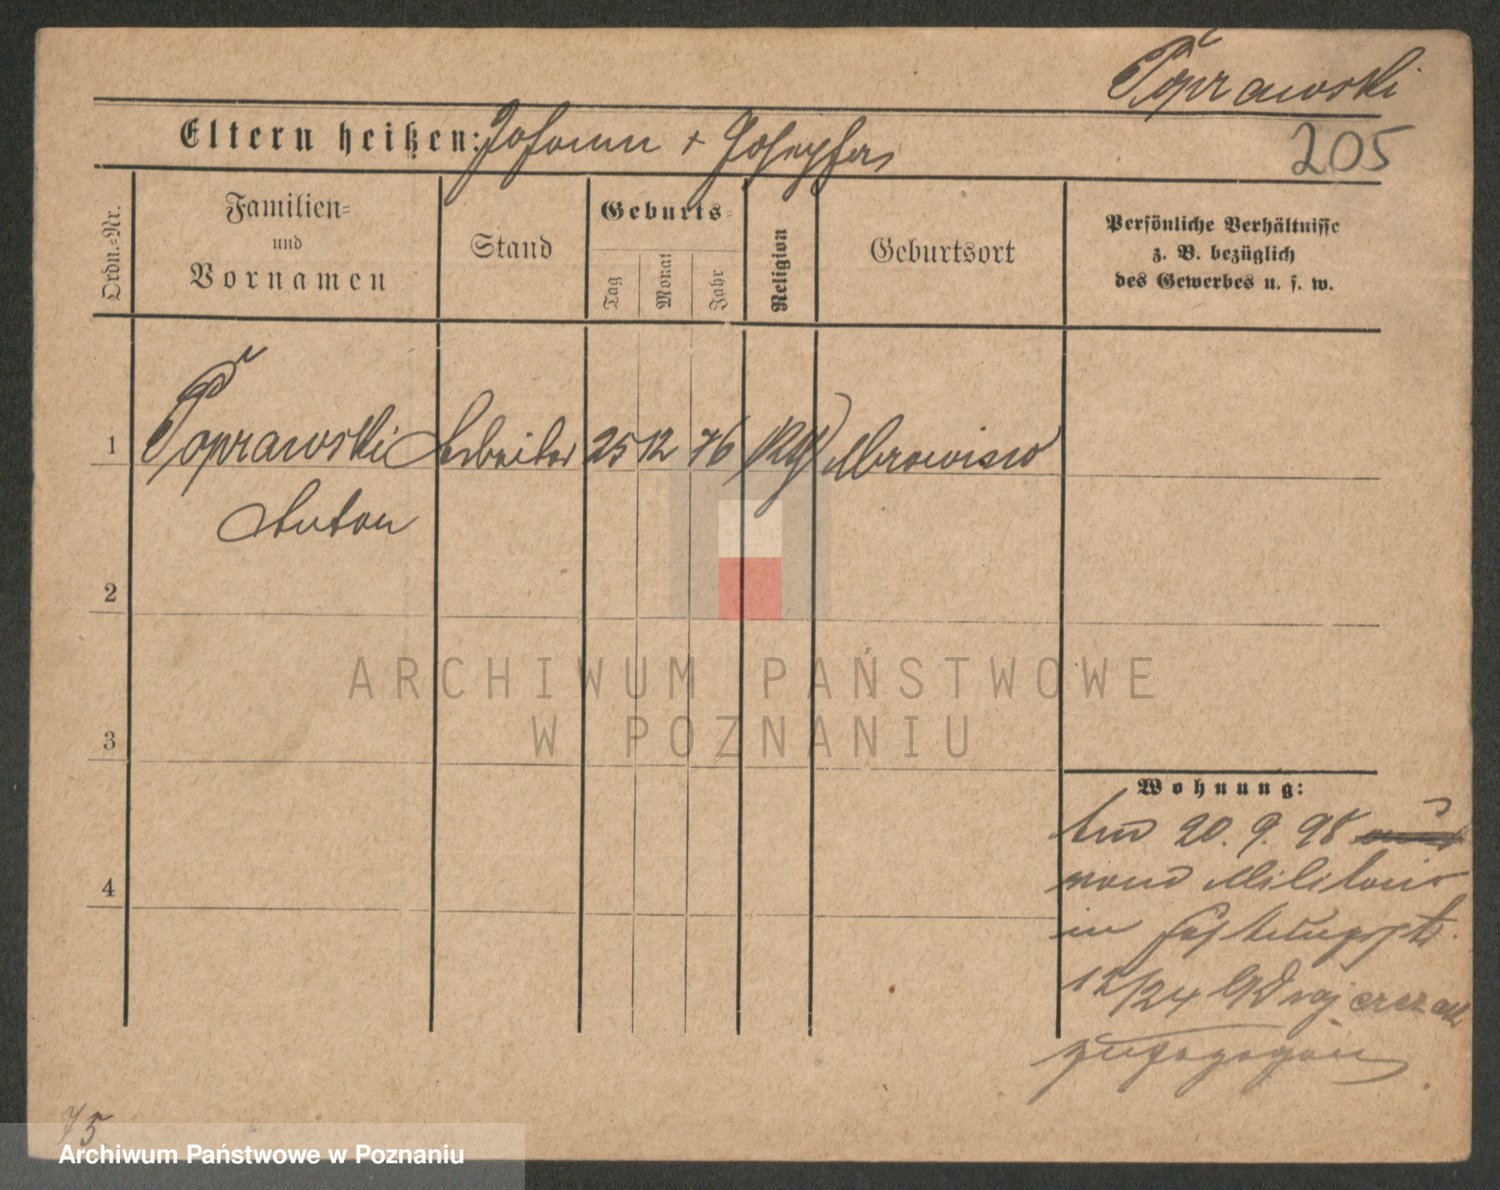 Poprawski
205
Eltern heißen: Johann + Josepha
Ordn.=Nr.
Familien=
und
Vornamen
Stand
Geburts=
Tag
Monat
Jahr
Religion
Geburtsort
Persönliche Verhältnisse
z. B. bezüglich
des Gewerbes u. s. w.
1 Poprawski Arbeiter 25 12 76
Anton
2
3
4
ARCHIWUM PAŃSTWOWE
W POZNANIU
Wohnung:
20. 9. 98
vom Militair
in
12/24
zugezogen
75
Archiwum Państwowe w Poznaniu